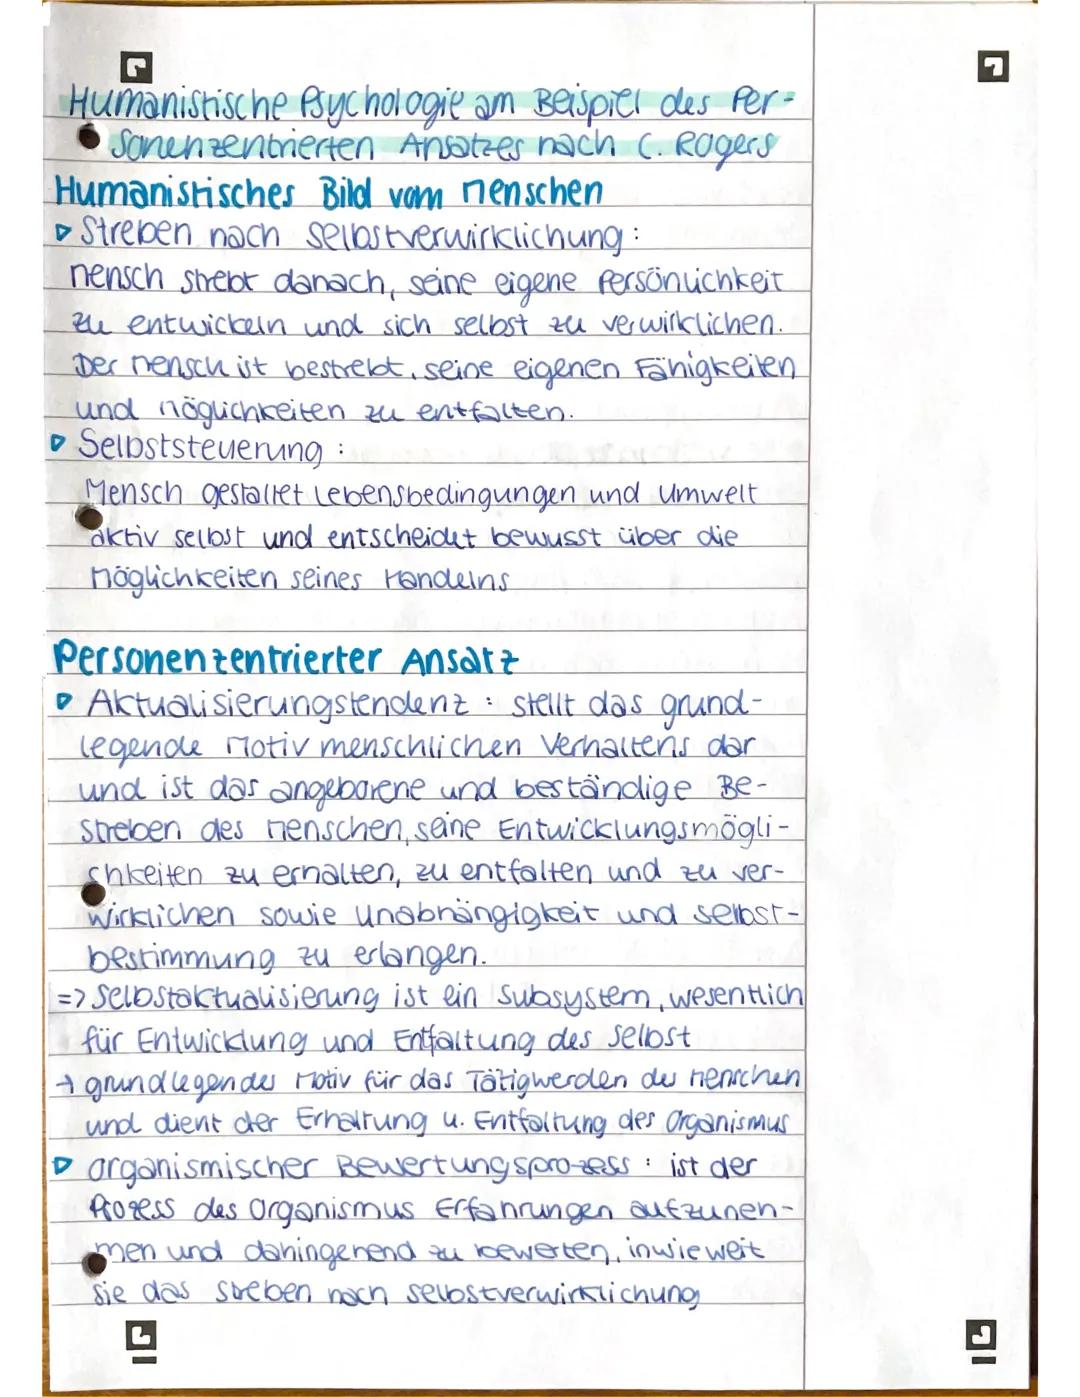 Humanistische Psychologie am Beispiel des Per-
sonenzentrierten Ansatzes nach C. Rogers
Humanistisches Bild vom Menschen
▷ Streben nach Selbstverwirklichung:
Mensch strebt danach, seine eigene Persönlichkeit
zu entwickeln und sich selbst zu verwirklichen.
Der Mensch ist bestrebt, seine eigenen Fähigkeiten
und Möglichkeiten zu entfalten.
▷ Selbststeuerung:
Mensch gestaltet Lebensbedingungen und Umwelt
aktiv selbst und entscheidet bewusst über die
Möglichkeiten seines Handelns
Personenzentrierter Ansatz
▷ Aktualisierungstendenz: stellt das grund-
legende Motiv menschlichen Verhaltens dar
und ist das angeborene und beständige Be-
streben des Menschen, seine Entwicklungsmögli-
chkeiten zu erhalten, zu entfalten und zu ver-
wirklichen sowie Unabhängigkeit und Selbst-
bestimmung zu erlangen.
=> Selbstaktualisierung ist ein Subsystem, wesentlich
für Entwicklung und Entfaltung des Selbst
→ grundlegendes Motiv für das Tätigwerden des Menschen
und dient der Erhaltung u. Entfaltung des Organismus
▷ organismischer Bewertungsprozess: ist der
Prozess des Organismus Erfahrungen aufzuneh-
men und dahingehend zu bewerten, inwieweit
sie das Streben nach Selbstverwirklichung